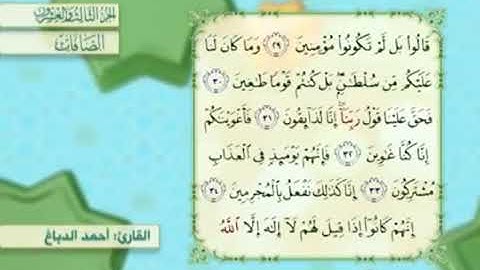 الجزء الثالث والعشرون
الصافات
قَالُوا۟ بَل لَّمْ تَكُونُوا۟ مُؤْمِنِينَ ٢٩ وَمَا كَانَ لَنَا
عَلَيْكُم مِّن سُلْطَٰنٍۭ بَلْ كُنتُمْ قَوْمًا طَٰغِينَ ٣٠
فَحَقَّ عَلَيْنَا قَوْلُ رَبِّنَآ إِنَّا لَذَآئِقُونَ ٣١ فَأَغْوَيْنَٰكُمْ
إِنَّا كُنَّا غَٰوِينَ ٣٢ فَإِنَّهُمْ يَوْمَئِذٍ فِى ٱلْعَذَابِ
مُشْتَرِكُونَ ٣٣ إِنَّا كَذَٰلِكَ نَفْعَلُ بِٱلْمُجْرِمِينَ ٣٤
إِنَّهُمْ كَانُوٓا۟ إِذَا قِيلَ لَهُمْ لَآ إِلَٰهَ إِلَّا ٱللَّهُ
القارئ: أحمد الدباغ